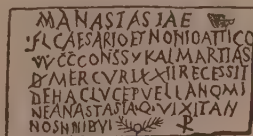 MANASTASIAE
FL CAESARIO ET NONIO ATTICO
VV CCCONSS V KAL MARTIAS
D MERCVRI LXXII RECESSIT
DEHAC LVCE PVELLA NOMI
NE ANASTASIA Q VIXIT AN
NOS